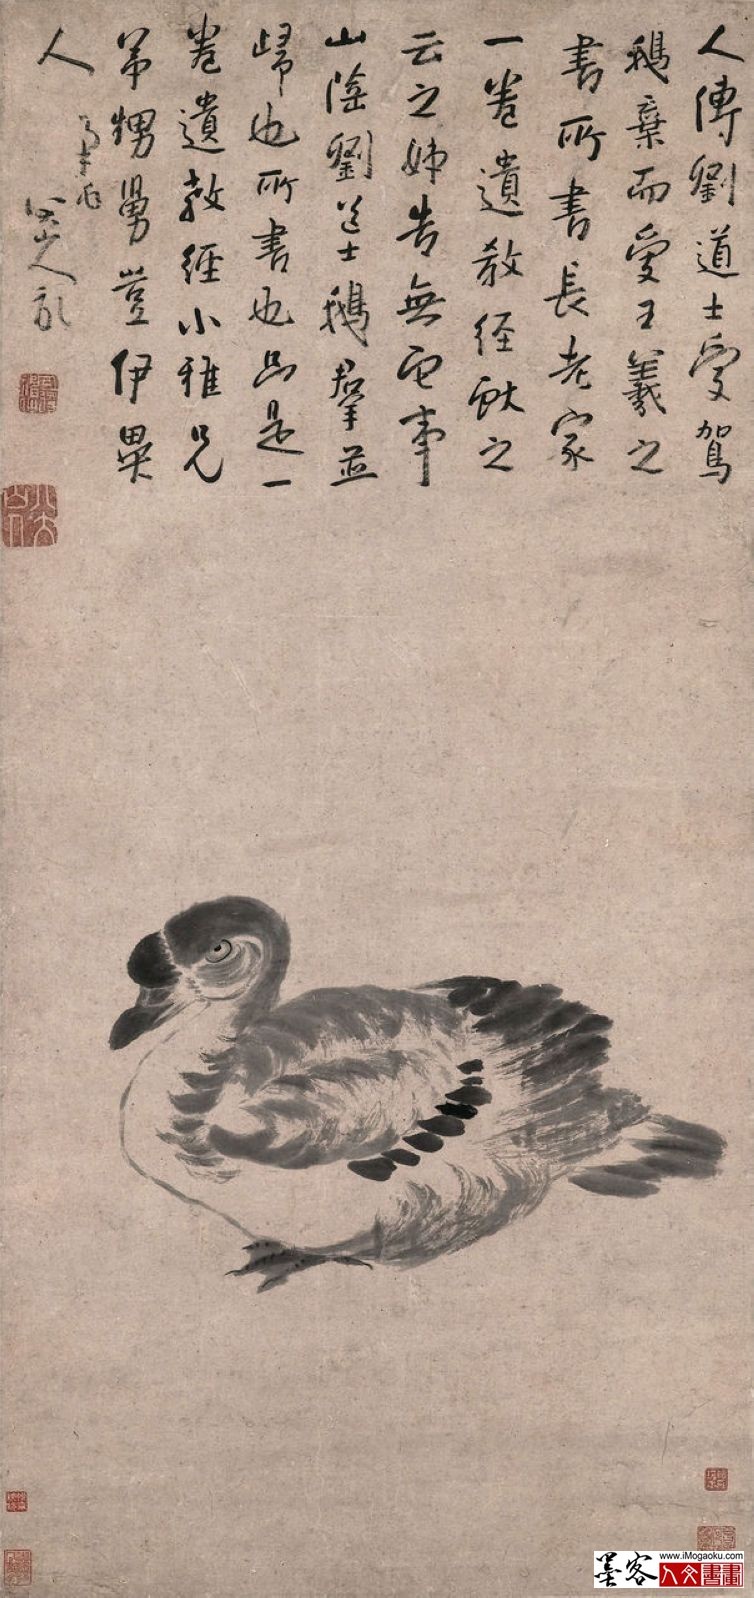 人傳劉道士受駕
鵝棄而愛王羲之
書所書長老家
一卷遺教經獻之
云之姊告無它事
山陰劉道士鵝群並
歸也所書也只是一
卷遺教經小雅兄
弟甥舅豈伊異
人
八大山人記
墨客
www.iMogaoku.com
人文書畫